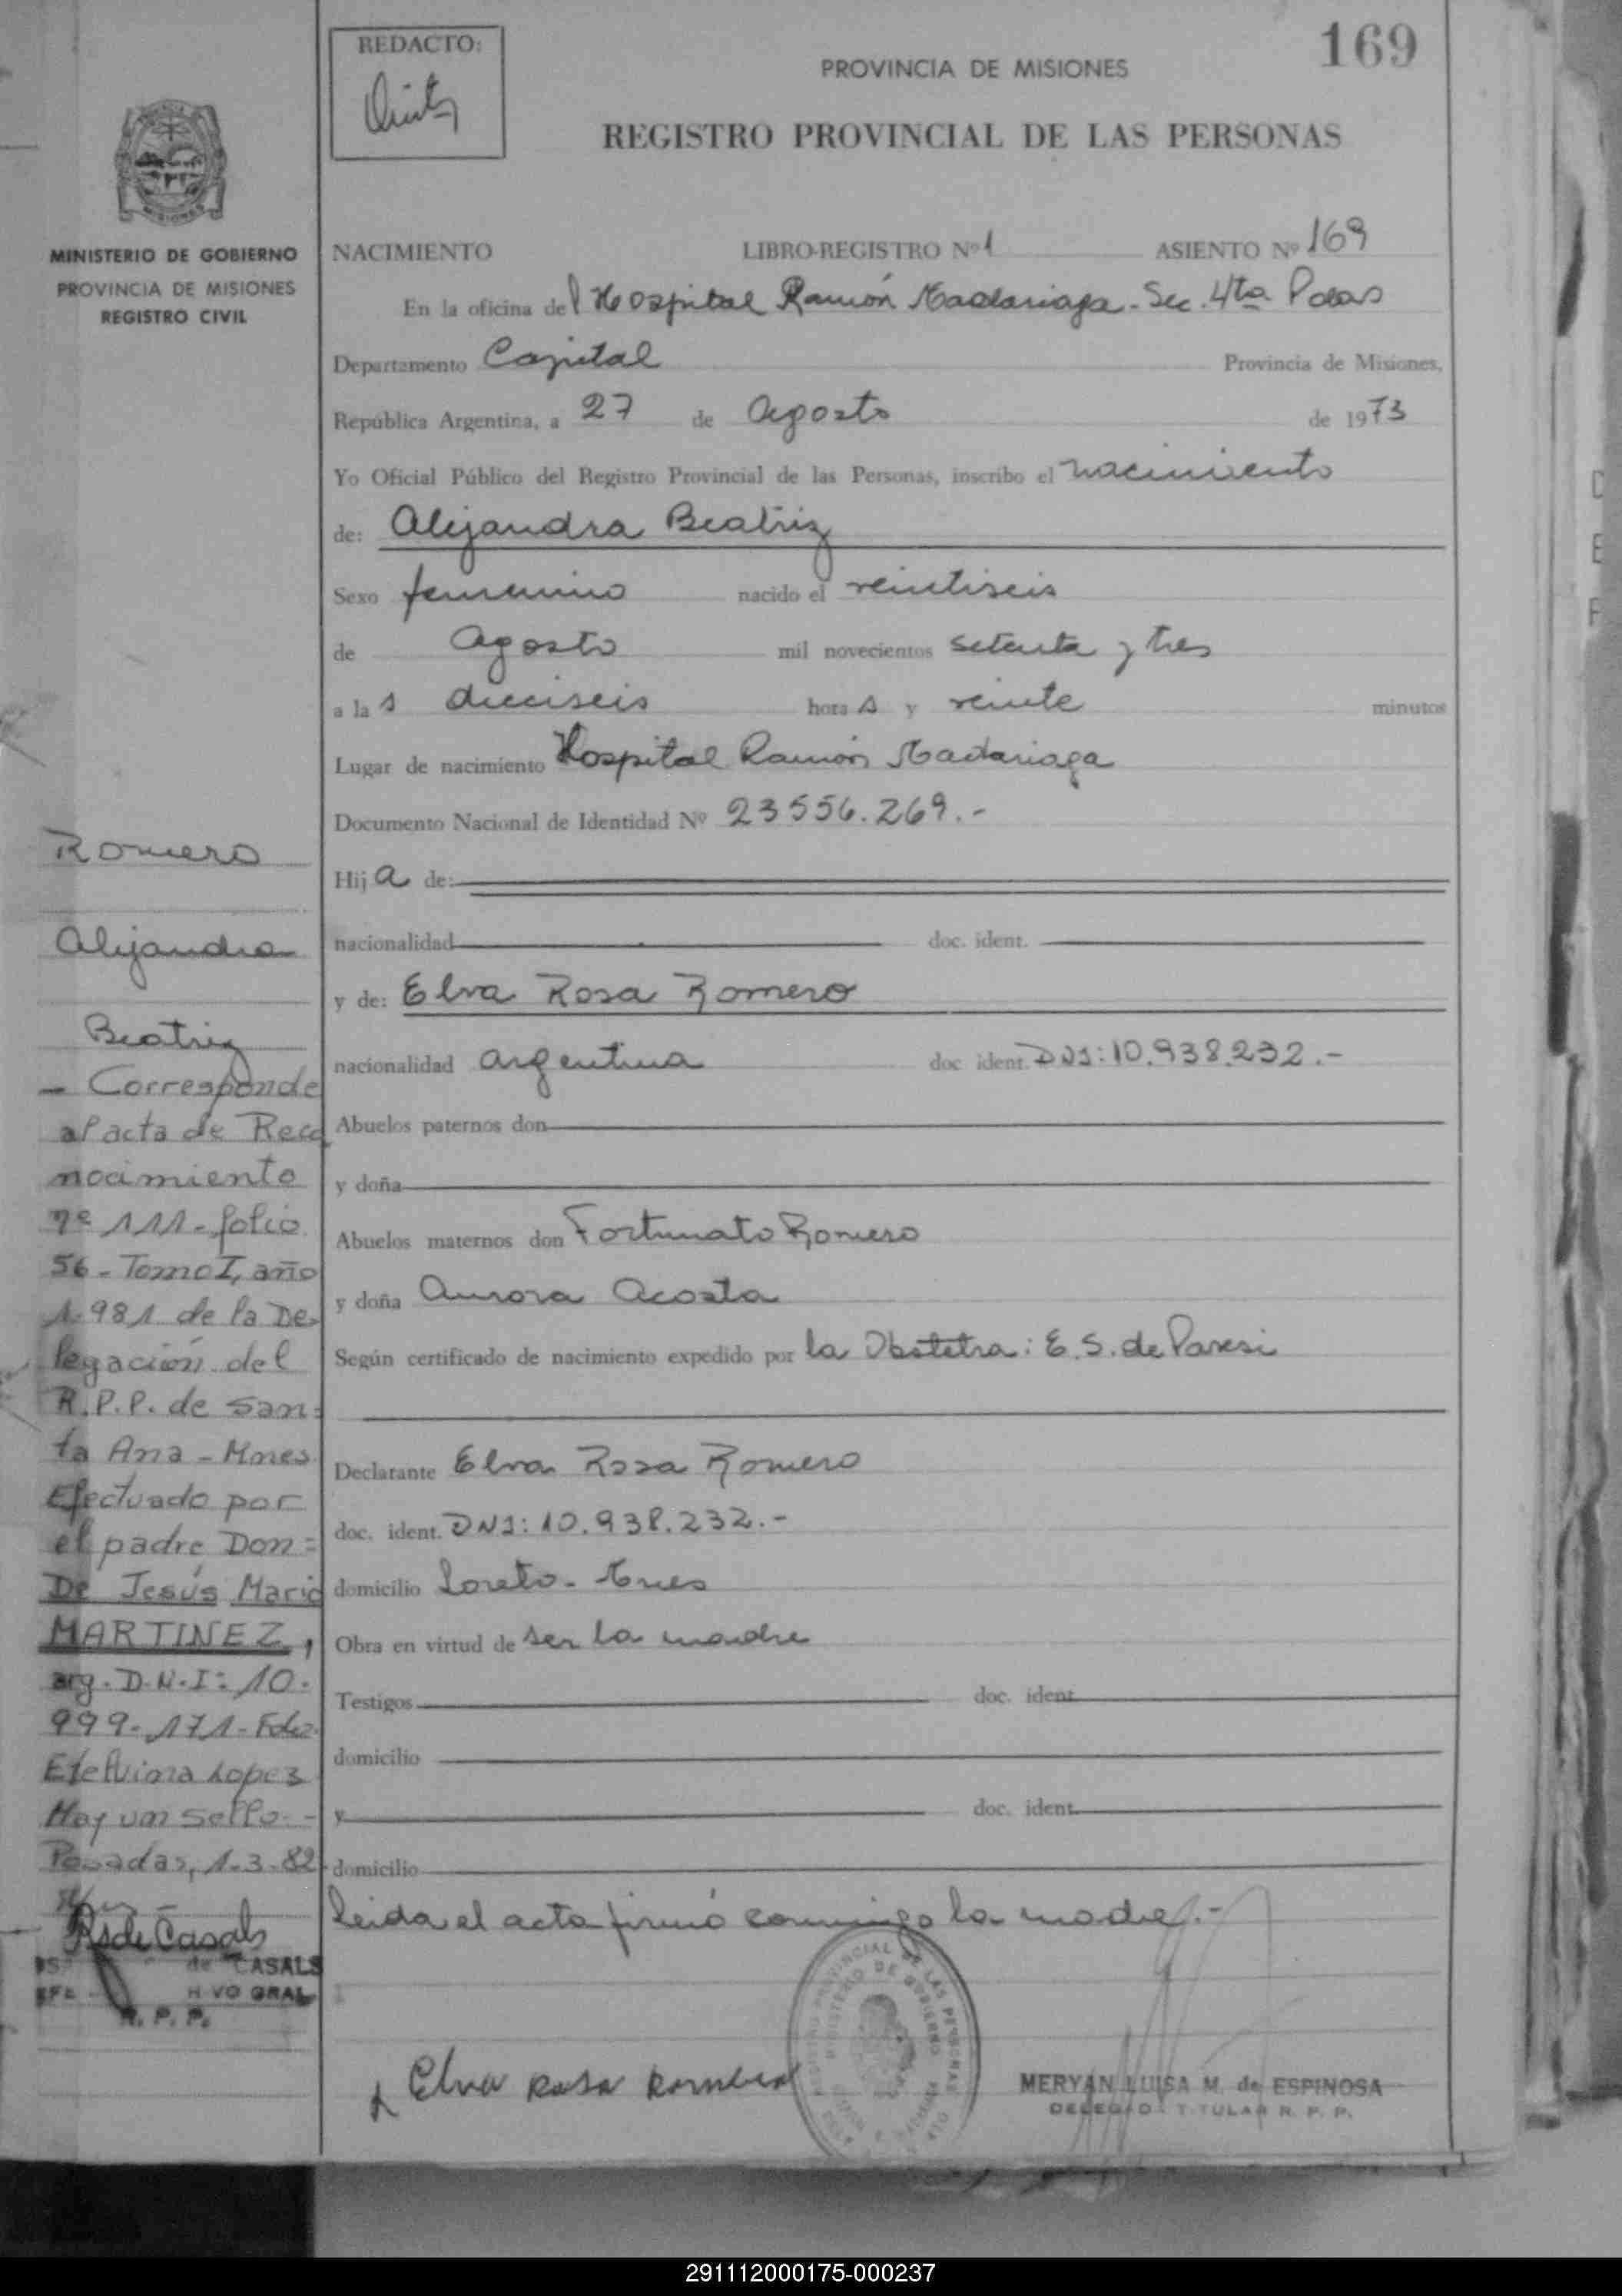 169
REDACTO:
PROVINCIA DE MISIONES
REGISTRO PROVINCIAL DE LAS PERSONAS
MISIONES
MINISTERIO DE GOBIERNO
PROVINCIA DE MISIONES
REGISTRO CIVIL
NACIMIENTO LIBRO-REGISTRO Nº 1 ASIENTO Nº 169
En la oficina del Hospital Ramón Madariaga - Sec. 4ta Pdas
Departamento Capital Provincia de Misiones,
República Argentina, a 27 de Agosto de 1973
Yo Oficial Público del Registro Provincial de las Personas, inscribo el nacimiento
de: Alejandra Beatriz
Sexo femenino nacido el veintiseis
de Agosto mil novecientos setenta y tres
a las dieciseis horas y veinte minutos
Lugar de nacimiento Hospital Ramón Madariaga
Documento Nacional de Identidad Nº 23556.269.-
Hija de:
nacionalidad doc. ident.
y de: Elva Rosa Romero
nacionalidad argentina doc ident. DNI: 10.938.232.-
Abuelos paternos don
y doña
Abuelos maternos don Fortunato Romero
y doña Aurora Acosta
Según certificado de nacimiento expedido por la Obstetra: E. S. de Paresi
Declarante Elva Rosa Romero
doc. ident. DNI: 10.938.232.-
domicilio Loreto - Mnes
Obra en virtud de ser la madre
Testigos doc. ident.
domicilio
y doc. ident.
domicilio
Leida el acta firmó conmigo la madre.-
Elva Rosa Romero
MERYAN LUISA M. de ESPINOSA
DELEGADA TITULAR R. P. P.
Romero
Alejandra
Beatriz
- Corresponde
al acta de Reco
nocimiento
nº 111 - folio
56 - Tomo I, año
1.981 de la De-
legación del
R.P.P. de San=
ta Ana - Mnes
Efectuado por
el padre Don =
De Jesús Mario
MARTINEZ,
arg. D.N.I: 10.
999.171 - Fdo.
Etelvina Lopez
Hay un sello. -
Posadas, 1.3.82
R de Casals
de CASALS
R. P. P.
291112000175-000237